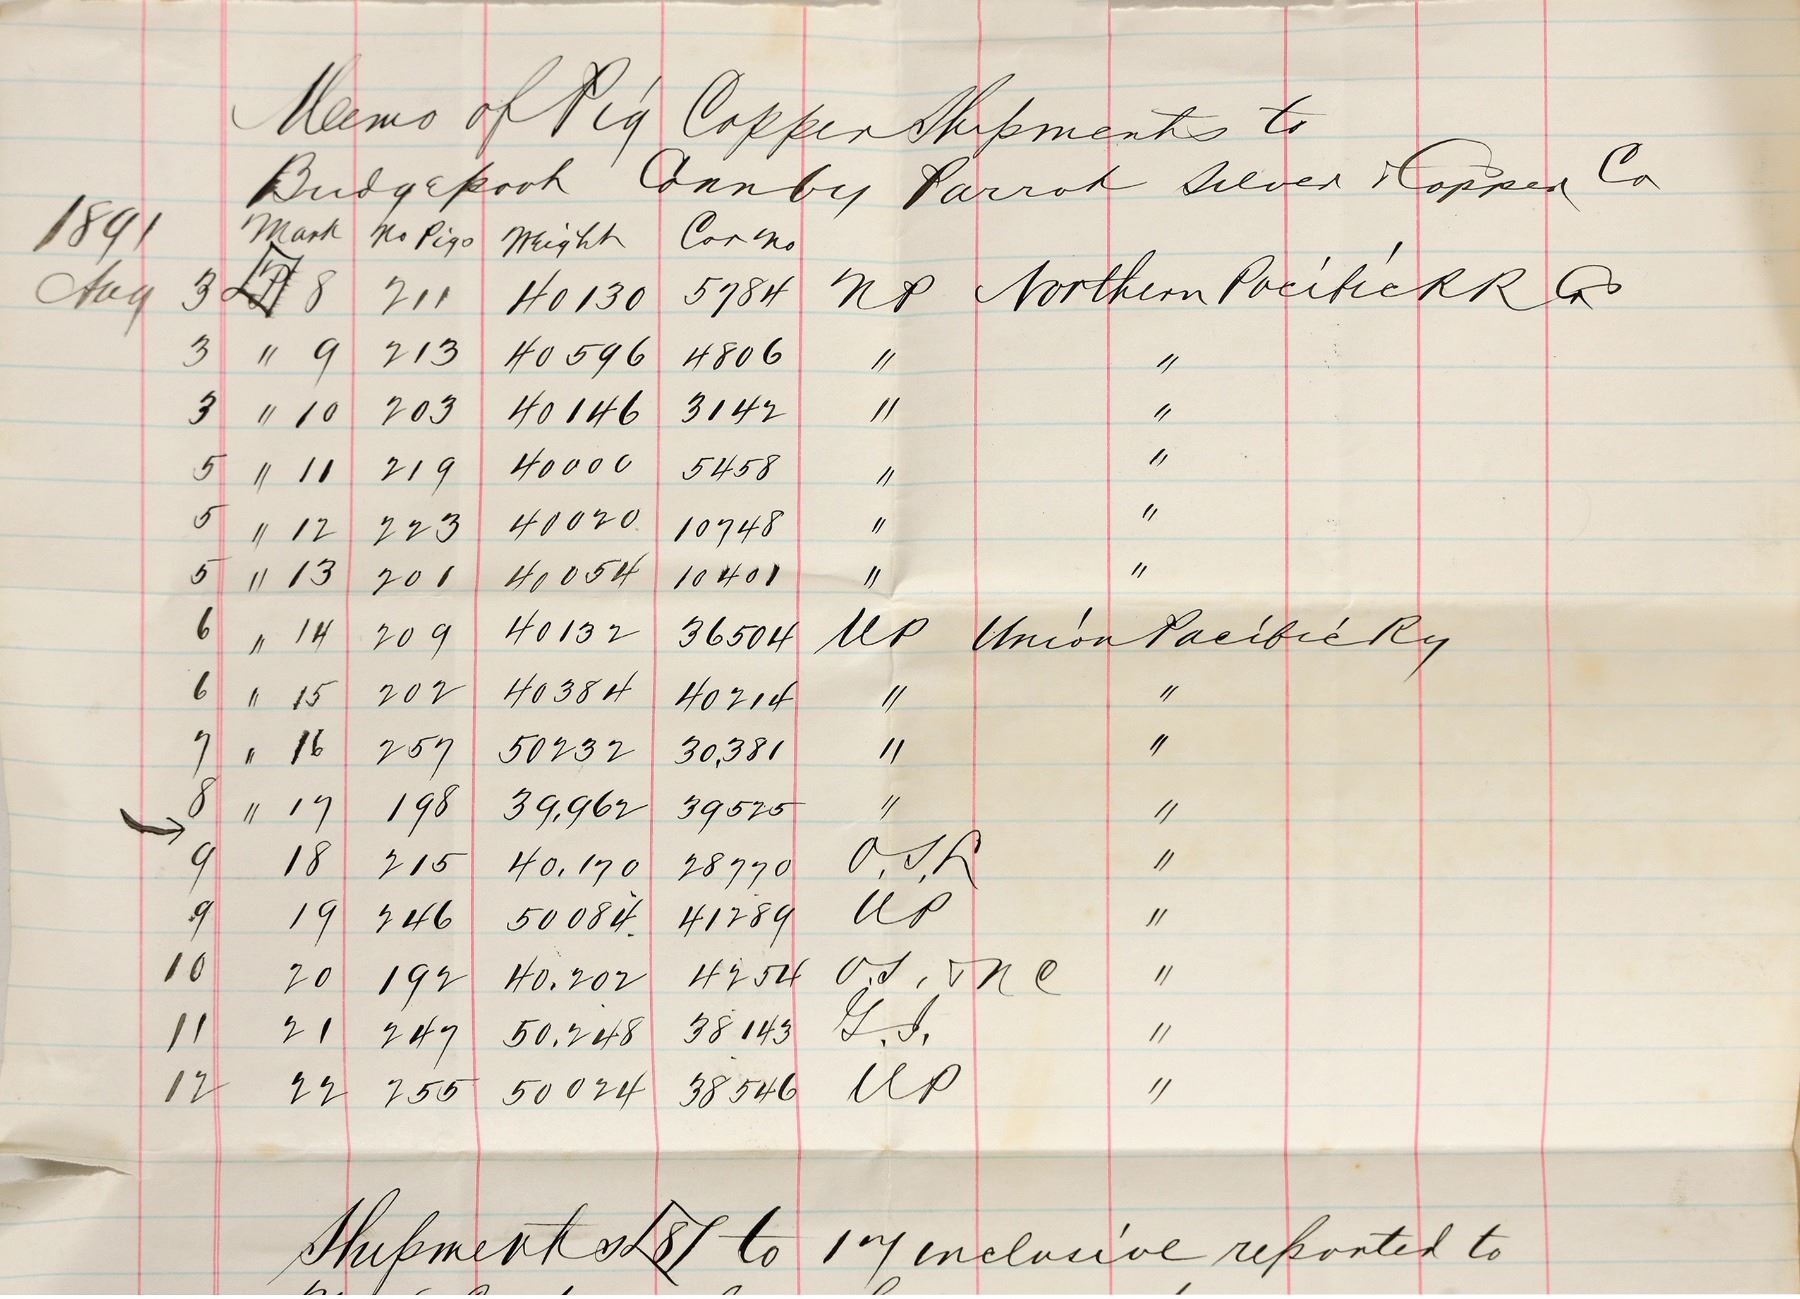 Memo of Pig Copper Shipments to
Bridgeport Conn by Parrot Silver & Copper Co
1891 Mark No Pigs Weight Car No
Aug 3 8 211 40130 5784 NP Northern Pacific RR Co
3 " 9 213 40596 4806 " "
3 " 10 203 40146 3142 " "
5 " 11 219 40000 5458 " "
5 " 12 223 40020 10748 " "
5 " 13 201 40054 10401 " "
6 " 14 209 40132 36504 UP Union Pacific Ry
6 " 15 202 40384 40214 " "
7 " 16 257 50232 30,381 " "
8 " 17 198 39,962 39525 " "
9 18 215 40,170 28770 O.S.L "
9 19 246 50084 41289 UP "
10 20 192 40,202 4254 O.S. & N C "
11 21 247 50,248 38143 "
12 22 255 50024 38546 UP "
Shipments 8 to 17 inclusive reported to